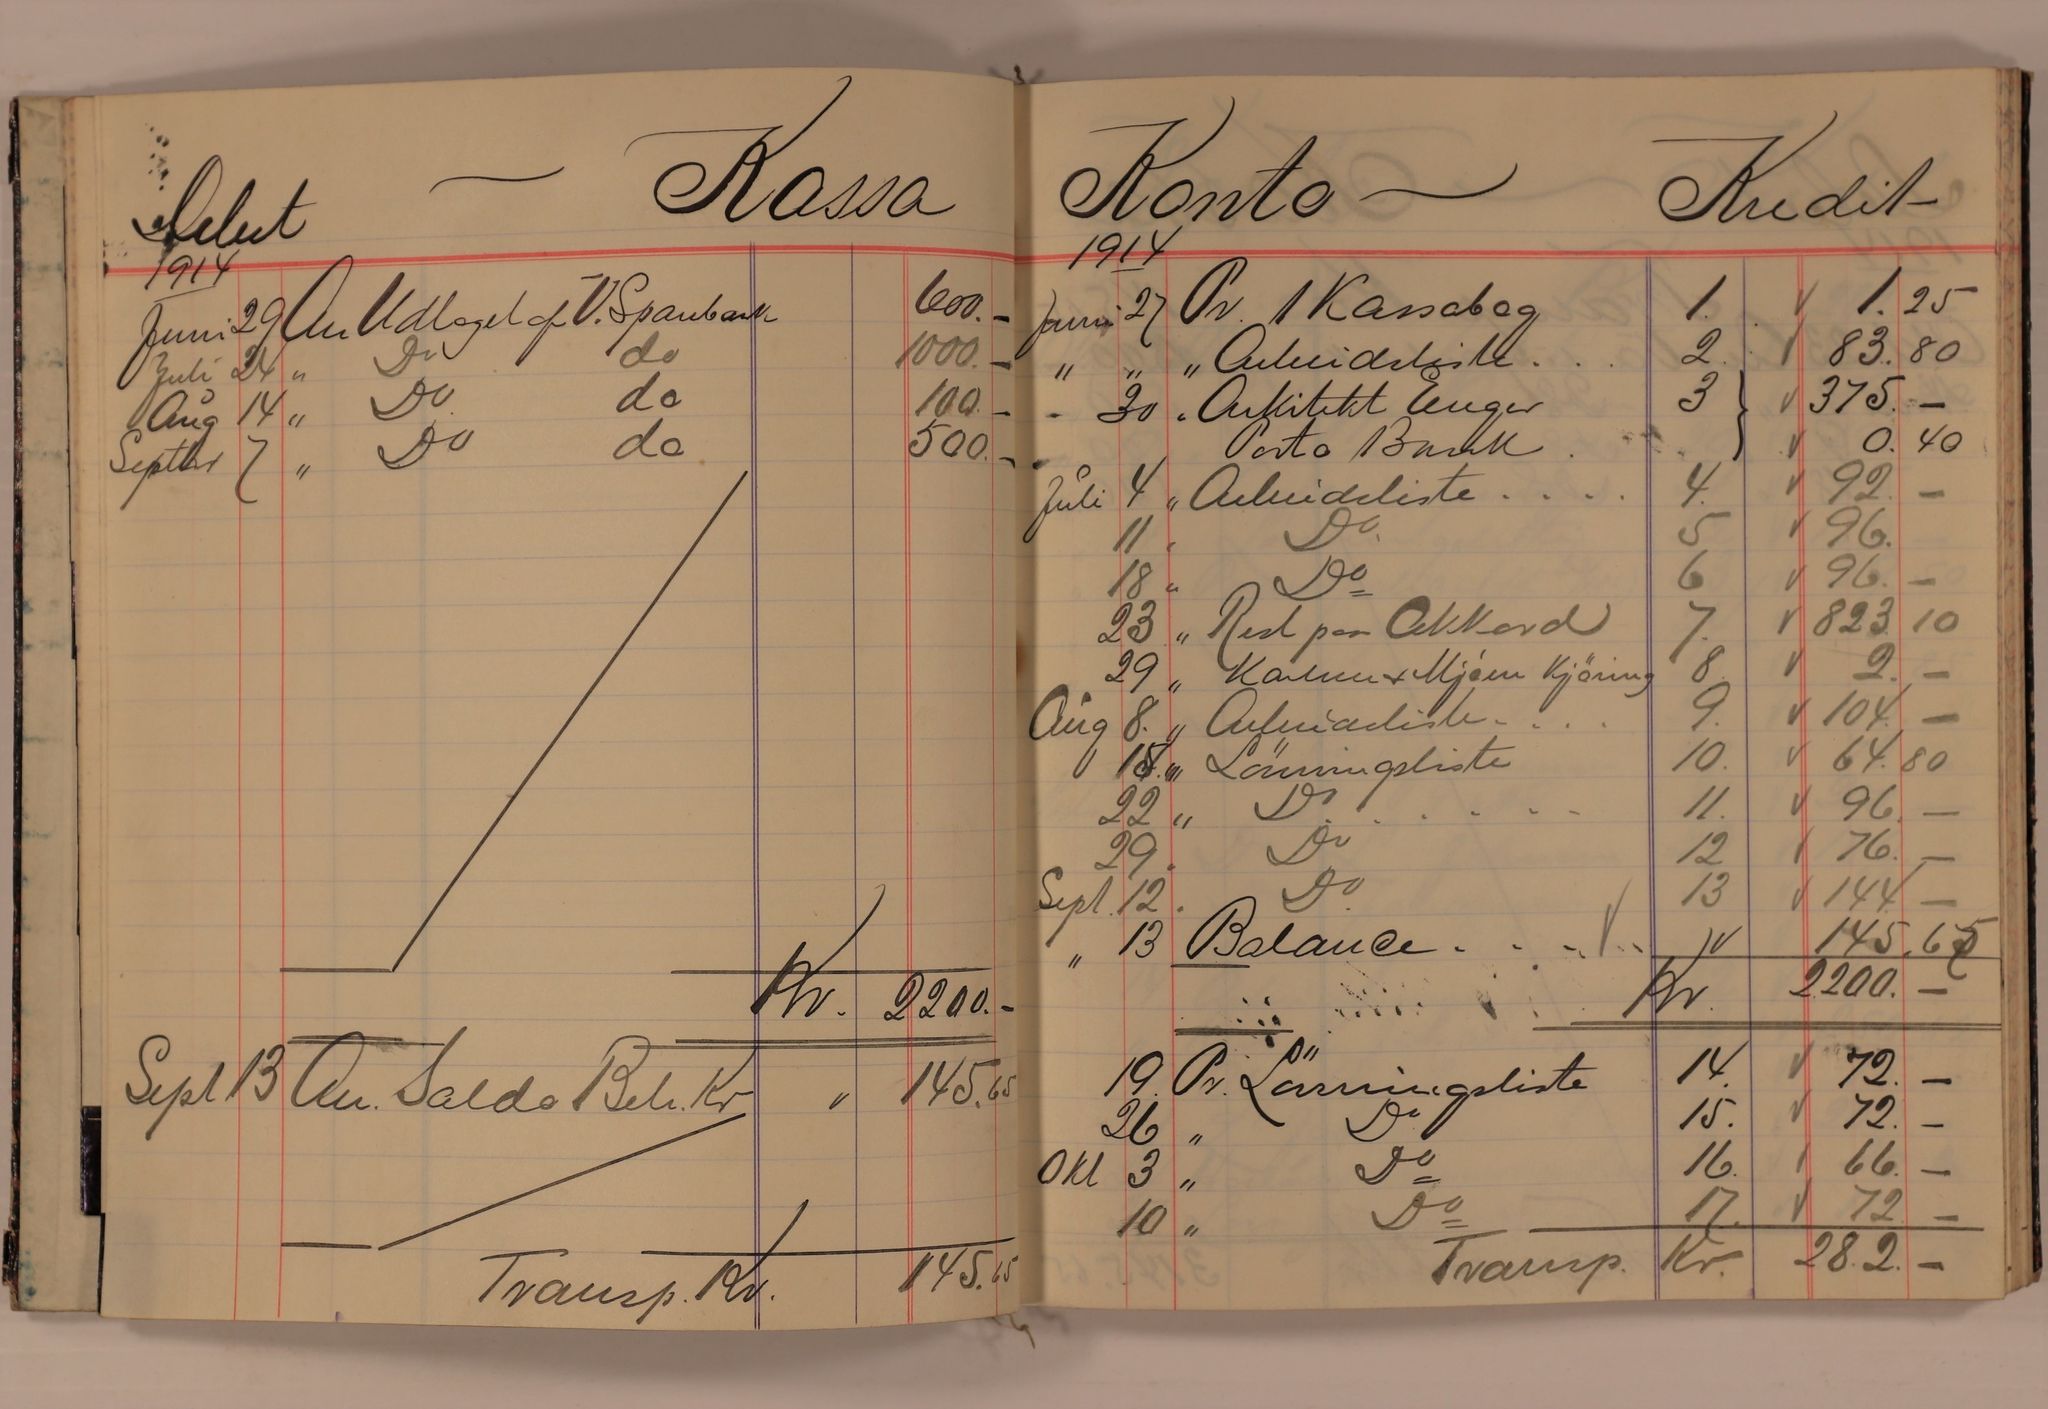 Debet — Kassa
1914
Juni 29 An Udtaget af V. Sparebank 600.–
Juli 24 " Do do 1000.–
Aug 14 " Do do 100.–
Septbr 7 " Do do 500.–
Kr. 2200.–
Sept 13 An Saldo Beh. Kr " 145.65
Transp. Kr. 145.65
Konto — Kredit
1914
Juni 27 Pr. 1 Kassabog 1. 1.25
" " " Arbeidsliste . . . 2. 83.80
- 30 " Arkitekt Enger 3 375.–
Porto Bank . 0.40
Juli 4 " Arbeidsliste . . . . 4. 92.–
11 . Do. 5 96.
18 " Do 6 96.–
23 " Rest paa Akkord 7. 823.10
29 " Mjöen Kjöring 8. 2.–
Aug 8. " Arbeidsliste . . . . 9. 104.–
15. " Lönningsliste 10. 64.80
22 " Do . . . . . 11. 96.–
29 . Do 12 76.–
Sept. 12 . Do 13 144.–
" 13 Balance . . . . 145.65
Kr. 2200.–
19. Pr. Lönningsliste 14. 72.–
26 " Do 15. 72.–
Okt 3 " Do 16. 66.–
10 " Do 17. 72.–
Transp. Kr. 282.–